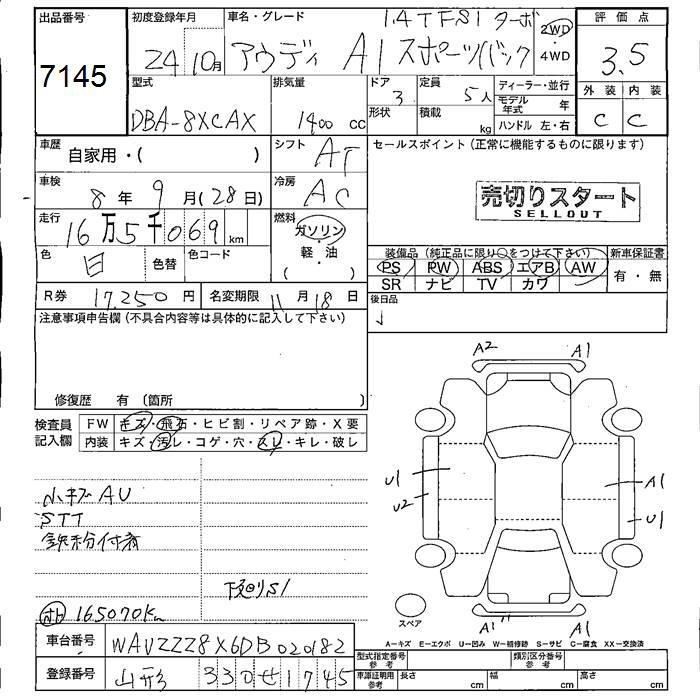 出品番号 初度登録年月 車名・グレード 1.4TFSI ターボ 2WD・4WD 評価点
7145 24 10月 アウディ A1 スポーツバック 3.5
型式 排気量 ドア 定員 ディーラー・並行 外装 内装
DBA-8XCAX 1400 cc 3 5人 モデル年式 年 C C
形状 積載 kg ハンドル 左・右
車歴 自家用・( ) シフト AT セールスポイント (正常に機能するものに限ります)
車検 8年 9月 (28日) 冷房 AC 売切りスタート
SELLOUT
走行 16万5千069km 燃料 ガソリン・軽・油 ( )
色 白 色替 色コード 装備品 (純正品に限り○をつけて下さい) 新車保証書
PS PW ABS エアB AW 有・無
SR ナビ TV カワ
R券 17,250円 名変期限 11月18日 後日品
注意事項申告欄 (不具合内容等は具体的に記入して下さい)
A2 A1
修復歴 有 (箇所 )
検査員記入欄 FW キズ・飛石・ヒビ割・リペア跡・X要
内装 キズ・汚レ・コゲ・穴・スレ・キレ・破レ
U1 A1
U2 U1
小キズ AU
STT
鉄粉付着
下廻りS1
165070Km
スペア
A1 A1
A-キズ E-エクボ U-凹み W-補修跡 S-サビ C-腐食 XX-交換済
車台番号 WAUZZZ8X6DB020182
型式指定番号 参考 類別区分番号 参考
登録番号 山形 330せ1745
車庫証明用 参考 長さ cm 幅 cm 高さ cm